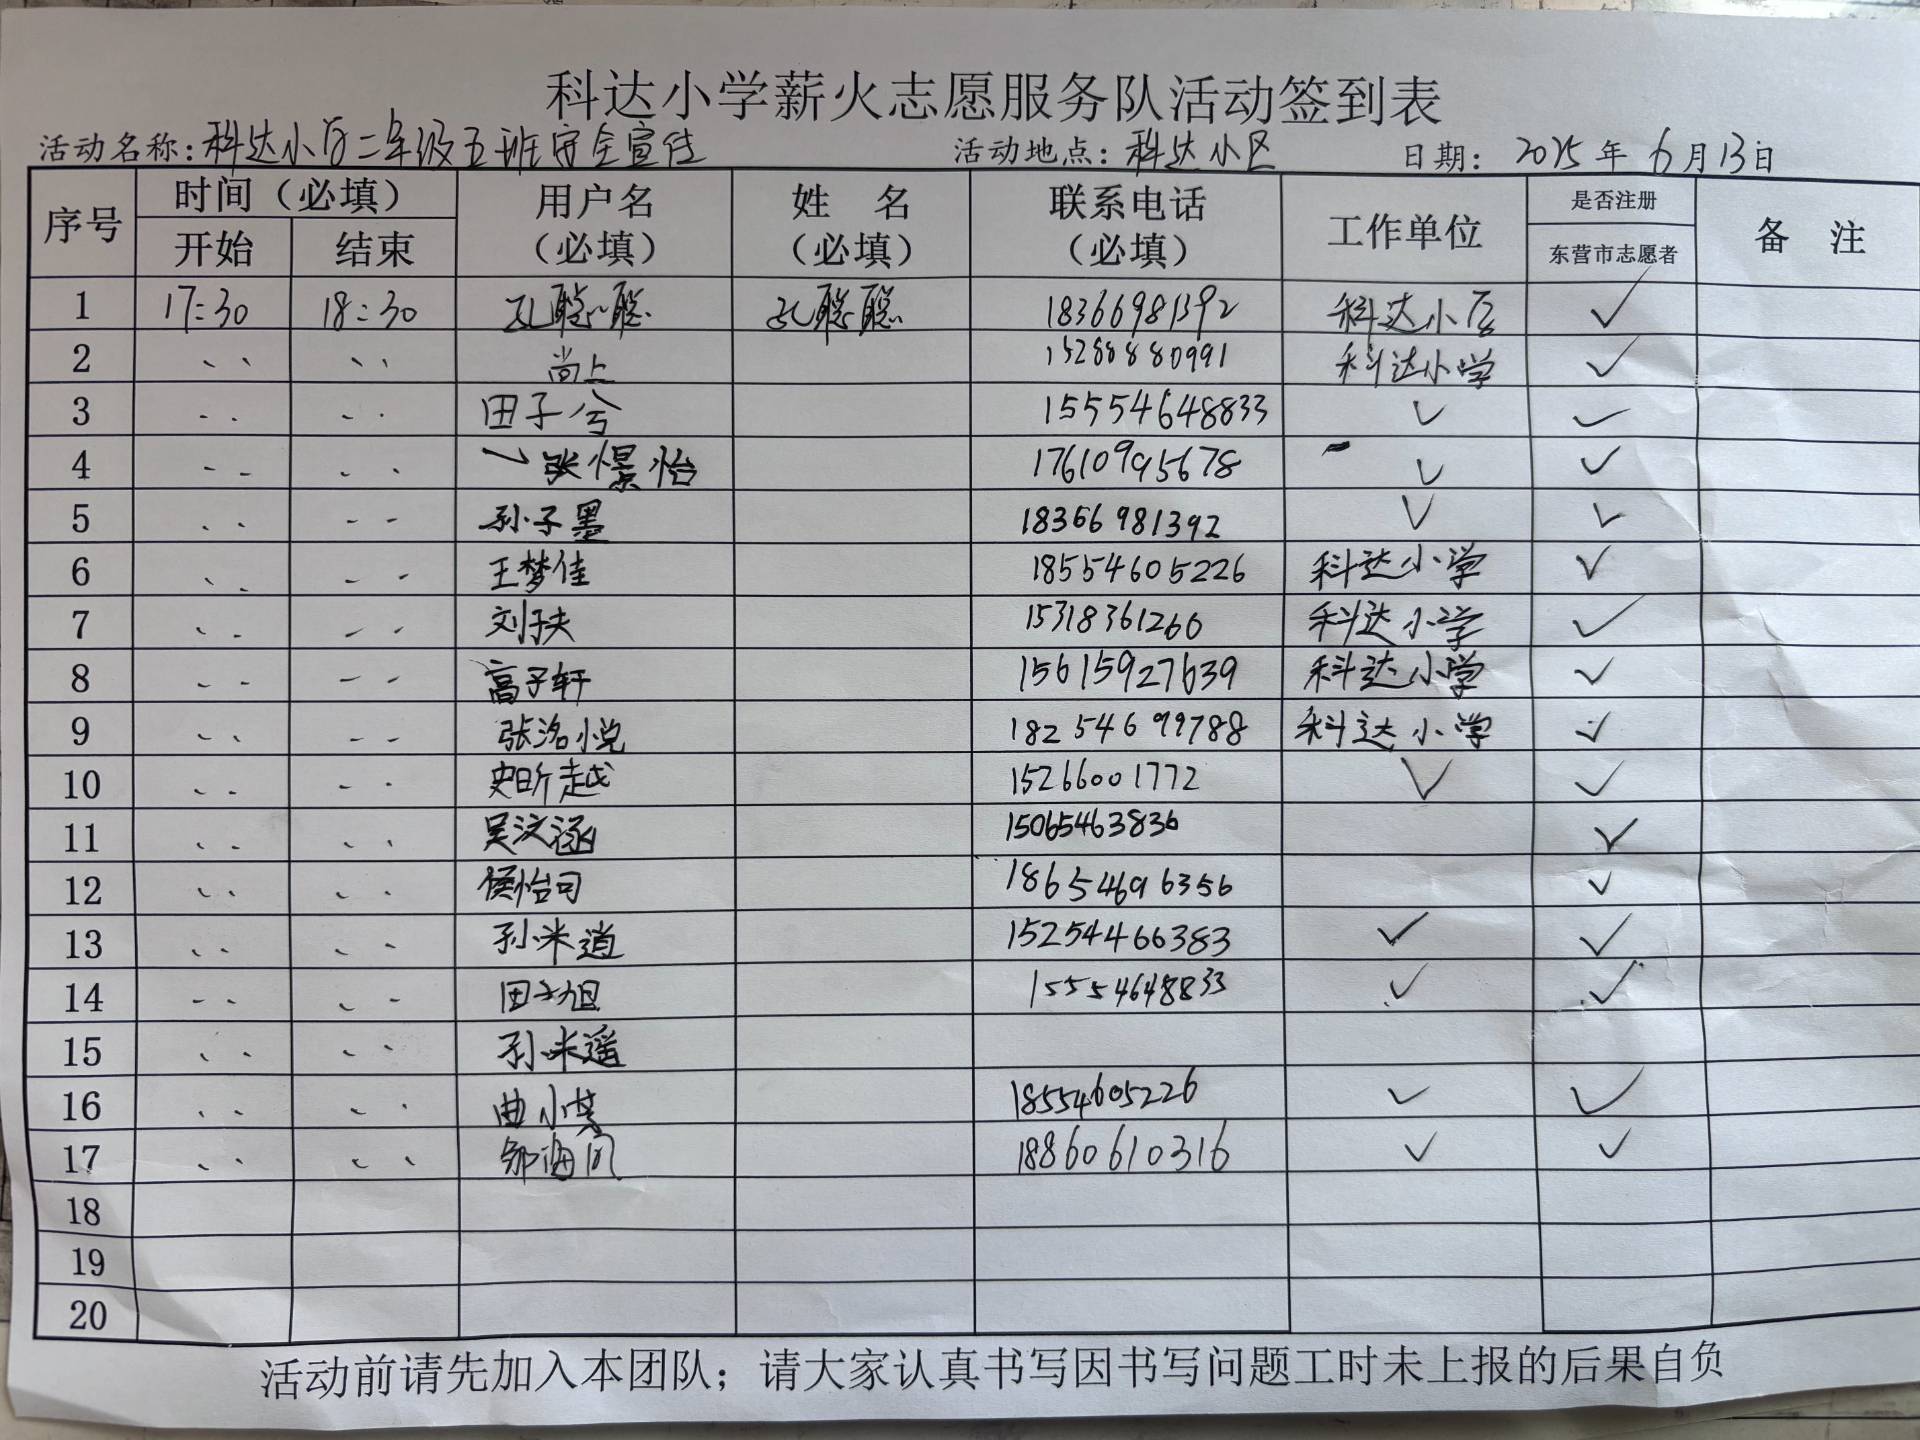 科达小学薪火志愿服务队活动签到表
活动名称：科达小学二年级五班安全宣传 活动地点：科达小区 日期：2025年6月13日
序号 时间（必填） 用户名（必填） 姓 名（必填） 联系电话（必填） 工作单位 是否注册 备 注
开始 结束 东营市志愿者
1 17:30 18:30 孔聪聪 孔聪聪 18366981392 科达小学 ✓
2 尚上 15288880991 科达小学 ✓
3 田子兮 15554648833 ✓ ✓
4 张憬怡 17610995678 ✓ ✓
5 孙子墨 18366981392 ✓ ✓
6 王梦佳 18554605226 科达小学 ✓
7 刘子夫 15318361266 科达小学 ✓
8 高子轩 15615927639 科达小学 ✓
9 张洺小悦 18254699788 科达小学 ✓
10 史昕越 15266001772 ✓ ✓
11 吴汶涵 15065463836 ✓
12 侯怡可 18654696356 ✓
13 孙米逍 15254466383 ✓ ✓
14 田子旭 15554648833 ✓ ✓
15 孙米遥
16 曲小 18554605226 ✓ ✓
17 邹海 18860610316 ✓ ✓
18
19
20
活动前请先加入本团队；请大家认真书写因书写问题工时未上报的后果自负